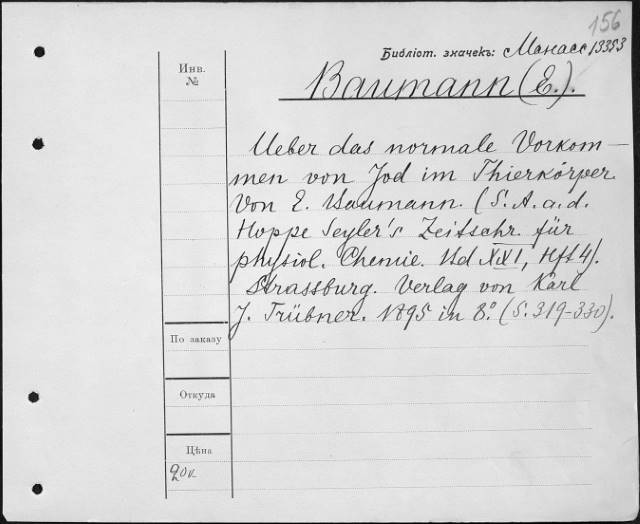 156
Библіот. значекъ: Манасс 13353
Инв.
№
Baumann (E.).
Ueber das normale Vorkom—
men von Jod im Thierkörper
Von E. Baumann. (S. A. a. d.
Hoppe Seyler's Zeitschr. für
physiol. Chemie. Bd XXI, Hft 4).
Strassburg. Verlag von Karl
J. Trübner. 1895 in 8º. (S. 319-330).
По заказу
Откуда
Цѣна
20к